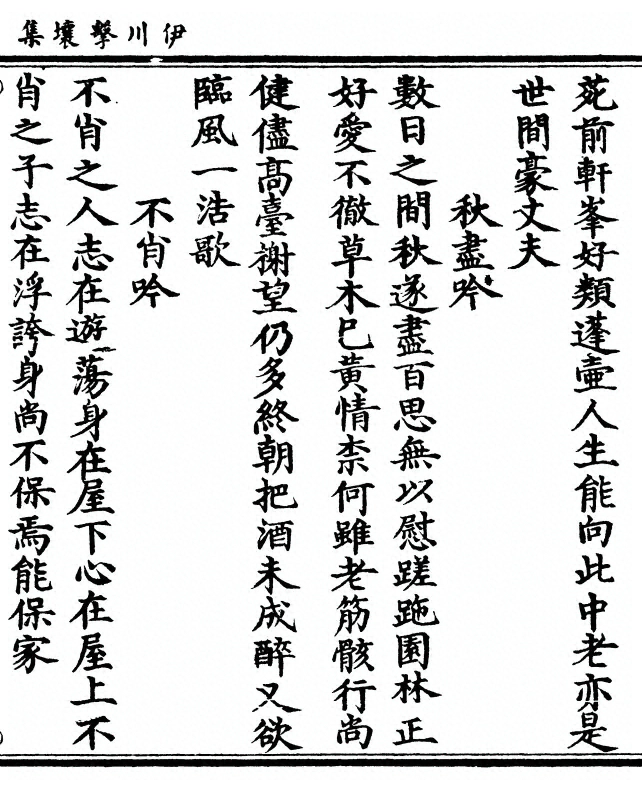 伊川擊壤集
苑前軒峯好類蓬壷人生能向此中老亦是
世間豪丈夫
秋盡吟
數日之間秋遂盡百思無以慰蹉跎園林正
好愛不徹草木已黃情柰何雖老筋骸行尚
健儘高臺榭望仍多終朝把酒未成醉又欲
臨風一浩歌
不肖吟
不肖之人志在遊蕩身在屋下心在屋上不
肖之子志在浮誇身尚不保焉能保家